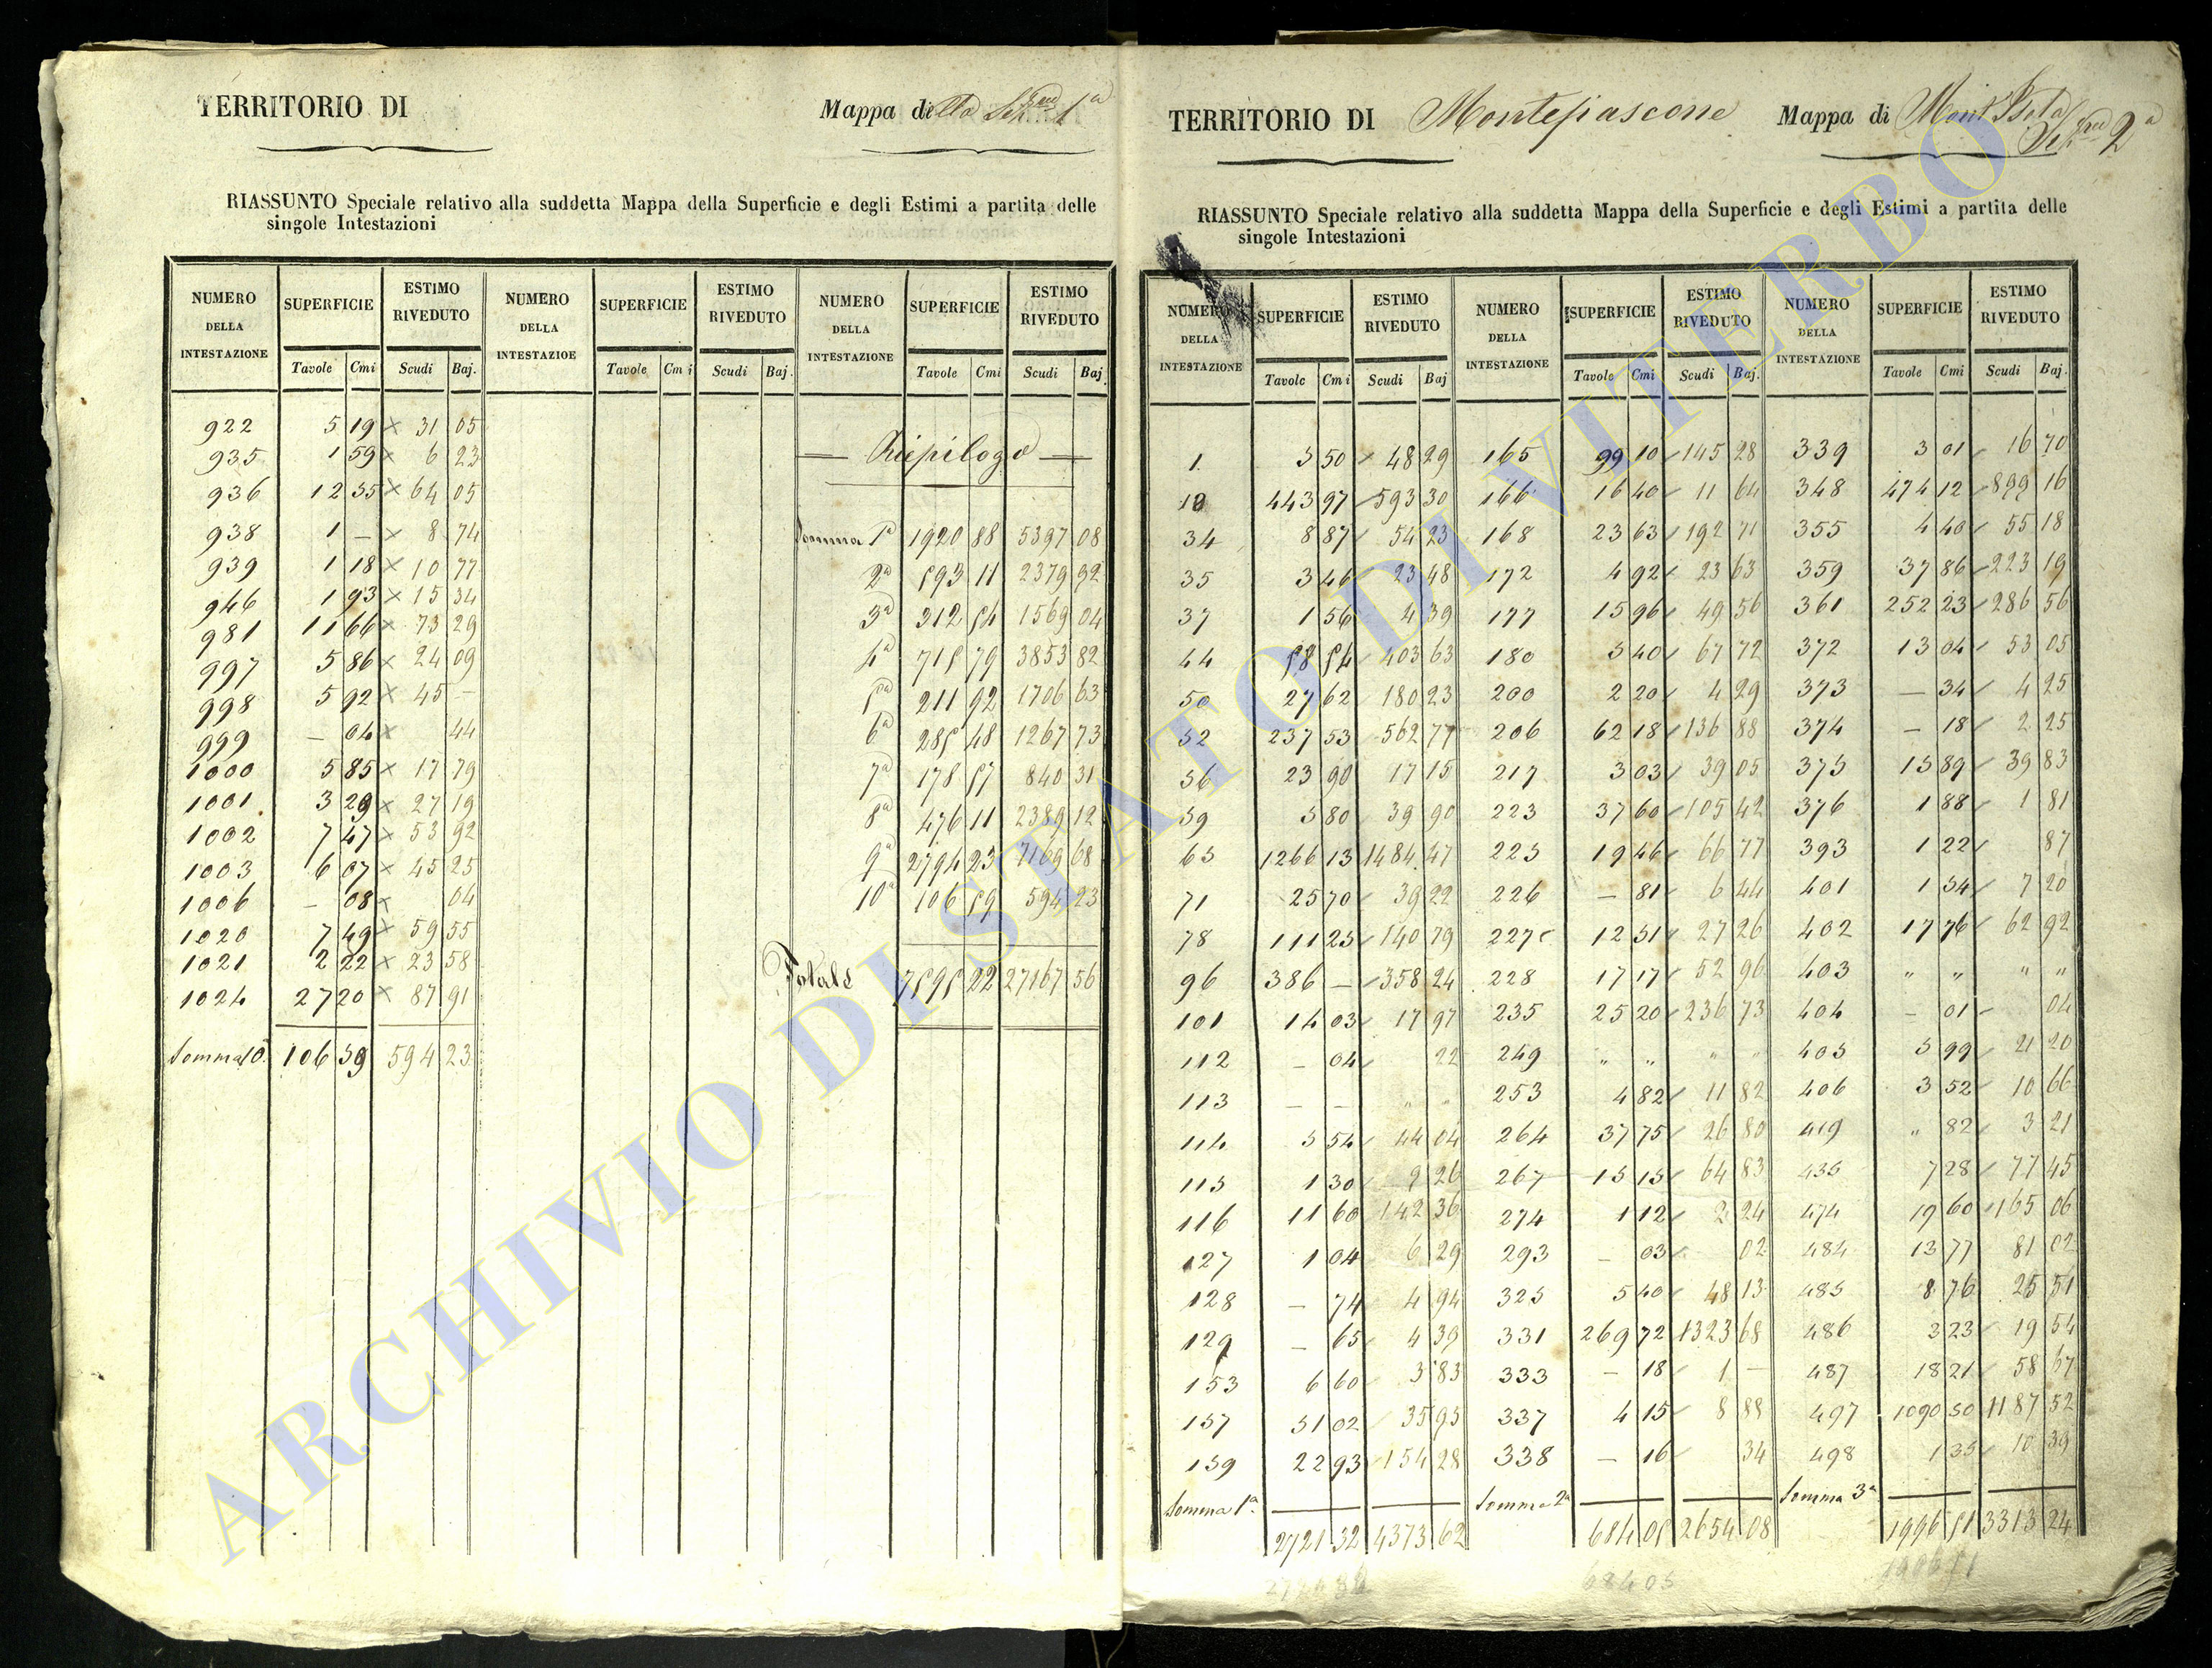 TERRITORIO DI
Mappa della Sezne 1a
RIASSUNTO Speciale relativo alla suddetta Mappa della Superficie e degli Estimi a partita delle
singole Intestazioni
NUMERO DELLA INTESTAZIONE SUPERFICIE ESTIMO RIVEDUTO NUMERO DELLA INTESTAZIOE SUPERFICIE ESTIMO RIVEDUTO NUMERO DELLA INTESTAZIONE SUPERFICIE ESTIMO RIVEDUTO
Tavole Cmi Scudi Baj. Tavole Cmi Scudi Baj. Tavole Cmi Scudi Baj
922 5 19 × 31 05
935 1 59 × 6 23
936 12 35 × 64 05
938 1 — × 8 74
939 1 18 × 10 77
946 1 93 × 15 34
981 11 66 × 73 29
997 5 86 × 24 09
998 5 92 × 45 —
999 — 04 × 44
1000 5 85 × 17 79
1001 3 29 × 27 19
1002 7 47 × 53 92
1003 6 07 × 45 25
1006 — 08 × 04
1020 7 49 × 59 55
1021 2 22 × 23 58
1024 27 20 × 87 91
Somma 10a 106 59 594 23
Riepilogo
Somma 1a 1920 88 5397 08
2a 593 11 2379 92
3a 312 54 1569 04
4a 715 79 3853 82
5a 211 92 1706 63
6a 285 48 1267 73
7a 178 57 840 31
8a 476 11 2389 12
9a 2794 23 7169 68
10a 106 59 594 23
Totale 7595 22 27167 56
TERRITORIO DI Montefiascone
Mappa di
Sezne 2a
RIASSUNTO Speciale relativo alla suddetta Mappa della Superficie e degli Estimi a partita delle
singole Intestazioni
NUMERO DELLA INTESTAZIONE SUPERFICIE ESTIMO RIVEDUTO NUMERO DELLA INTESTAZIONE SUPERFICIE ESTIMO RIVEDUTO NUMERO DELLA INTESTAZIONE SUPERFICIE ESTIMO RIVEDUTO
Tavole Cmi Scudi Baj Tavole Cmi Scudi Baj. Tavole Cmi Scudi Baj.
1 5 50 48 29 165 99 10 145 28 339 3 01 16 70
18 443 97 593 30 166 16 40 11 64 348 474 12 899 16
34 8 87 54 23 168 23 63 192 71 355 4 40 55 18
35 3 46 23 48 172 4 92 23 63 359 37 86 223 19
37 1 56 4 39 177 15 96 49 56 361 252 23 286 56
44 58 54 403 63 180 5 40 67 72 372 13 04 53 05
50 27 62 180 23 200 2 20 4 29 373 — 34 4 25
52 237 53 562 77 206 62 18 136 88 374 — 18 2 25
56 23 90 17 15 217 3 03 39 05 375 15 89 39 83
59 5 80 39 90 223 37 60 105 42 376 1 88 1 81
65 1266 13 1484 47 225 19 46 66 77 393 1 22 87
71 25 70 39 22 226 — 81 6 44 401 1 54 7 20
78 111 25 140 79 227 12 51 27 26 402 17 76 62 92
96 386 — 358 24 228 17 17 52 96 403 " " " "
101 14 03 17 97 235 25 20 236 73 404 — 01 04
112 — 04 22 249 " " " " 405 5 99 21 20
113 — — " " 253 4 82 11 82 406 3 52 10 66
114 5 54 44 04 264 37 75 26 80 419 " 82 3 21
115 1 30 9 26 267 15 15 64 83 435 7 28 77 45
116 11 60 142 36 274 1 12 2 24 474 19 60 165 06
127 1 04 6 29 293 — 03 02 484 13 77 81 02
128 — 74 4 94 325 5 40 48 13 485 8 76 25 51
129 — 65 4 39 331 269 72 1323 68 486 3 23 19 54
153 6 60 3 83 333 — 18 1 — 487 18 21 58 67
157 51 02 35 95 337 4 15 8 88 497 1090 50 1187 52
159 22 93 154 28 338 — 16 34 498 1 35 10 39
Somma 1a. 2721 32 4373 62 Somma 2a 684 05 2654 08 Somma 3a 1996 51 3313 24
684 05
ARCHIVIO DI STATO DI VITERBO